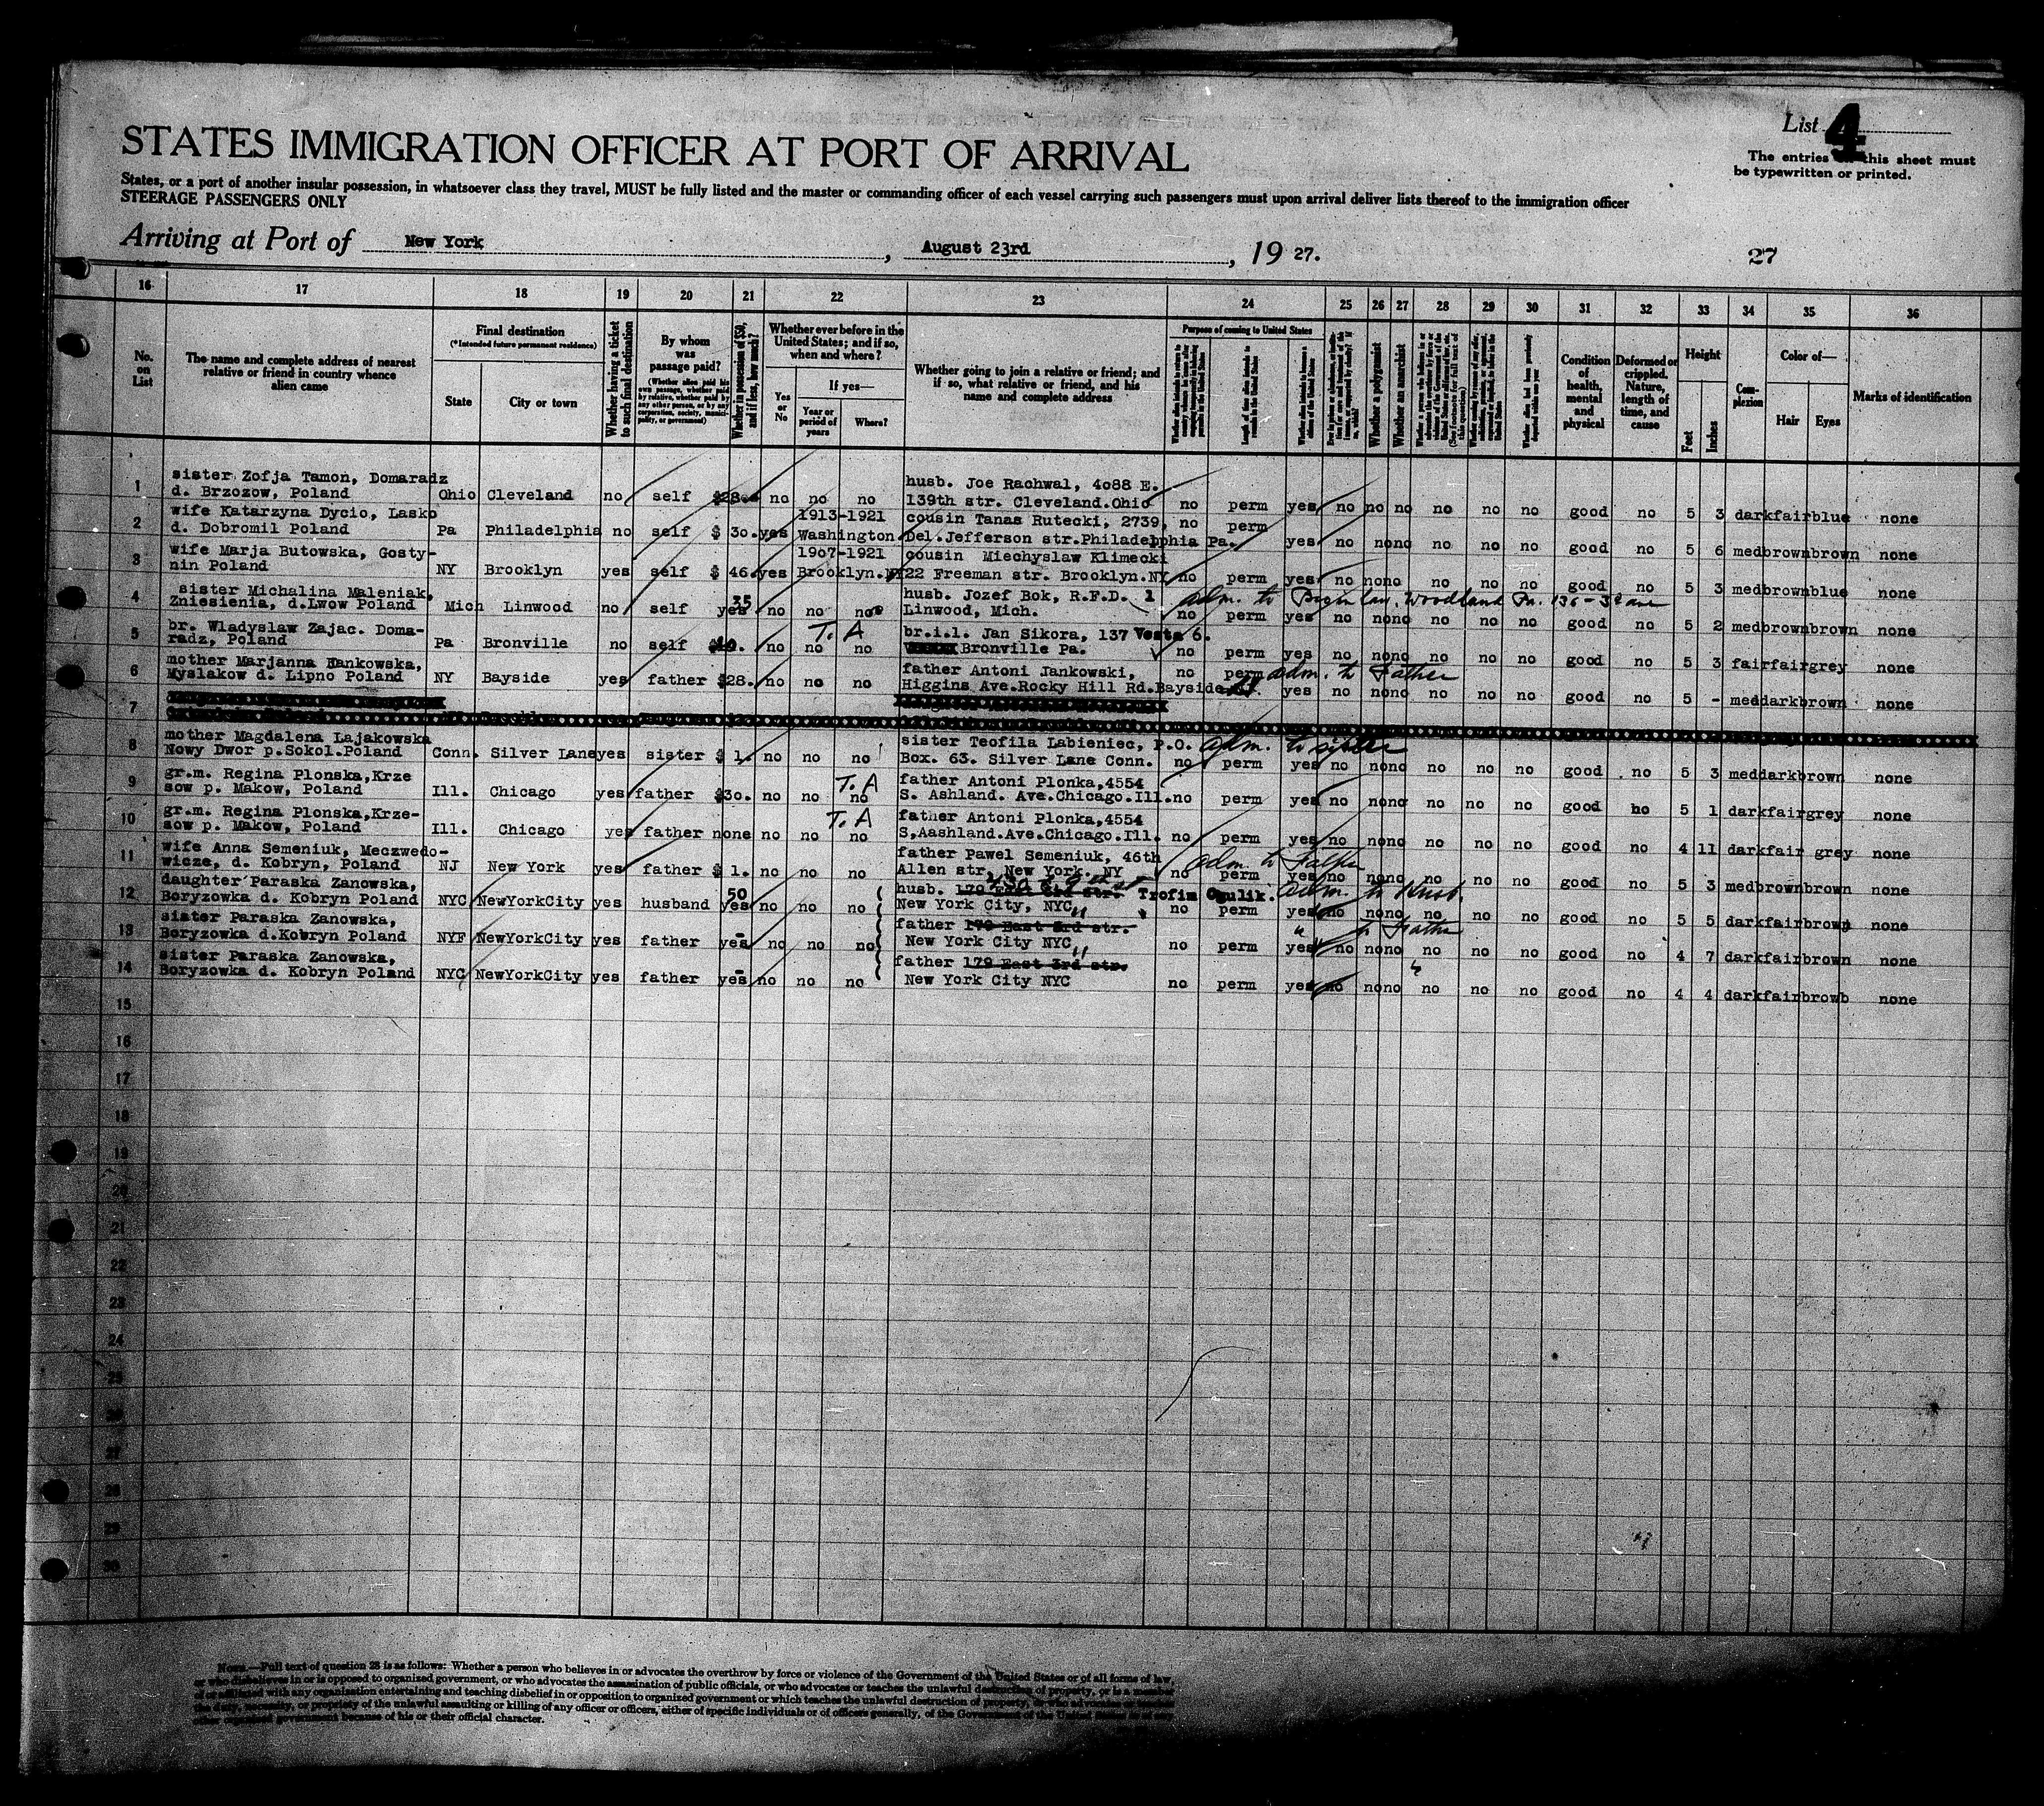 List 4
The entries on this sheet must
be typewritten or printed.
STATES IMMIGRATION OFFICER AT PORT OF ARRIVAL
States, or a port of another insular possession, in whatsoever class they travel, MUST be fully listed and the master or commanding officer of each vessel carrying such passengers must upon arrival deliver lists thereof to the immigration officer
STEERAGE PASSENGERS ONLY
Arriving at Port of New York, August 23rd, 19 27.
27
16 17 18 19 20 21 22 23 24 25 26 27 28 29 30 31 32 33 34 35 36
No. on List
The name and complete address of nearest
relative or friend in country whence
alien came
Final destination
(*Intended future permanent residence)
State
City or town
Whether having a ticket to such final destination
By whom was passage paid?
(Whether alien paid his own passage, whether paid by relative, whether paid by any other person, or by any corporation, society, municipality, or government)
Whether in possession of $50, and if less, how much?
Whether ever before in the
United States; and if so,
when and where?
Yes or No
If yes—
Year or period of years
Where?
Whether going to join a relative or friend; and
if so, what relative or friend, and his
name and complete address
Purpose of coming to United States
Whether a polygamist
Whether an anarchist
Condition of health, mental and physical
Deformed or crippled. Nature, length of time, and cause
Height
Feet
Inches
Complexion
Color of—
Hair
Eyes
Marks of identification
1 sister Zofja Tamon, Domaradz husb. Joe Rachwal, 4o88 E.
d. Brzozow, Poland Ohio Cleveland no self $28. no no no 139th str. Cleveland.Ohio no perm yes no no no no no no good no 5 3 dark fair blue none
2 wife Katarzyna Dycio, Lasko 1913-1921 cousin Tanas Rutecki, 2739,
d. Dobromil Poland Pa Philadelphia no self $ 30. yes Washington Del.Jefferson str.Philadelphia Pa. no perm yes no no no no no no good no 5 6 med brown brown none
3 wife Marja Butowska, Gosty- 19o7-1921 cousin Miechyslaw Klimecki
nin Poland NY Brooklyn yes self $ 46. yes Brooklyn.NY 22 Freeman str. Brooklyn.NY no perm yes no no no no no no good no 5 3 med brown blue none
4 sister Michalina Maleniak, 35 husb. Jozef Bok, R.F.D. 1 adm. to Woodland Pa.
Zniesienia, d.Lwow Poland Mich Linwood no self yes no no no Linwood, Mich. no perm yes no no no no no no good no 5 2 med brown brown none
5 br. Wladyslaw Zajac. Doma- T.A br.i.l. Jan Sikora, 137 Vesta 6.
radz, Poland Pa Bronville no self no no no Bronville Pa. no perm yes no no no no no no good no 5 3 fair fair grey none
6 mother Marjanna Rankowska, father Antoni Jankowski, adm. to Father
Myslakow d. Lipno Poland NY Bayside yes father $28. no no no Higgins Ave.Rocky Hill Rd.Bayside no perm yes no no no no no no good no 5 - med dark brown none
7
8 mother Magdalena Lajakowska sister Teofila Labieniec, P.O. adm. to sister
Nowy Dwor p.Sokol.Poland Conn. Silver Lane yes sister $ 1. no no no Box. 63. Silver Lane Conn. no perm yes no no no no no no good no 5 3 med dark brown none
9 gr.m. Regina Plonska,Krze T.A father Antoni Plonka,4554
sow p. Makow, Poland Ill. Chicago yes father $3o. no no no S. Ashland. Ave.Chicago.Ill. no perm yes no no no no no no good no 5 1 dark fair grey none
10 gr.m. Regina Plonska,Krze- T.A father Antoni Plonka,4554
sow p. Makow, Poland Ill. Chicago yes father none no no no S,Aashland.Ave.Chicago.Ill. no perm yes no no no no no no good no 4 11 dark fair grey none
11 wife Anna Semeniuk, Meczwedo- father Pawel Semeniuk, 46th adm. to Father
wicze, d. Kobryn, Poland NJ New York yes father $ 1. no no no Allen str. New York. NY no perm yes no no no no no no good no 5 3 med brown brown none
12 daughter Paraska Zanowska, 50 husb. 179 East 3rd str. Trofim Ogulik. adm. to Husb.
Boryzowka d. Kobryn Poland NYC NewYorkCity yes husband yes no no no New York City, NYC no perm yes no no no no no no good no 5 5 dark fair brown none
13 sister Paraska Zanowska, father 179 East 3rd str. " to Father
Boryzowka d.Kobryn Poland NYF NewYorkCity yes father yes no no no New York City NYC no perm yes no no no no no no good no 4 7 dark fair brown none
14 sister Paraska Zanowska, father 179 East 3rd str.
Boryzowka d. Kobryn Poland NYC NewYorkCity yes father yes no no no New York City NYC no perm yes no no no no no no good no 4 4 dark fair browb none
15
16
17
18
19
20
21
22
23
24
25
26
27
28
29
30
NOTE.—Full text of question 28 is as follows: Whether a person who believes in or advocates the overthrow by force or violence of the Government of the United States or of all forms of law,
or who disbelieves in or is opposed to organized government, or who advocates the assassination of public officials, or who advocates or teaches the unlawful destruction of property, or is a member
of or affiliated with any organization entertaining and teaching disbelief in or opposition to organized government or which teaches the unlawful destruction of property, or who advocates or teaches
the duty, necessity, or propriety of the unlawful assaulting or killing of any officer or officers, either of specific individuals or of officers generally, of the Government of the United States or of any
other organized government because of his or their official character.